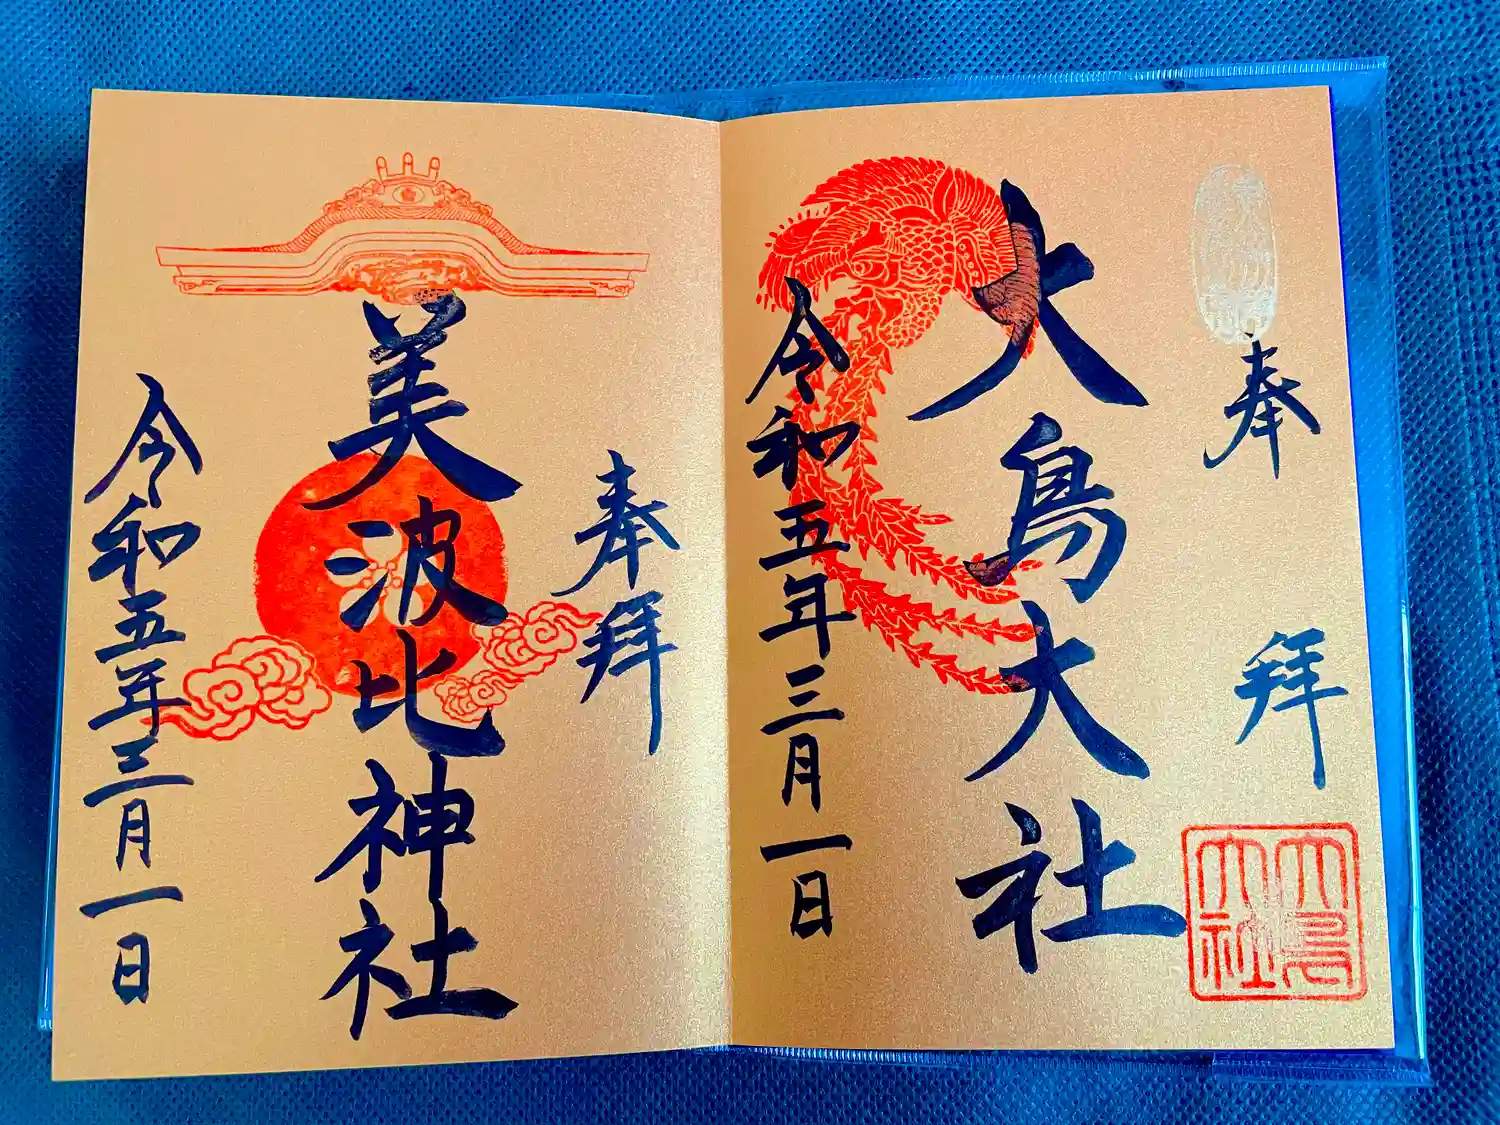 奉拝
大鳥大社
令和五年三月一日
大鳥
大社
奉拝
美波比神社
令和五年三月一日